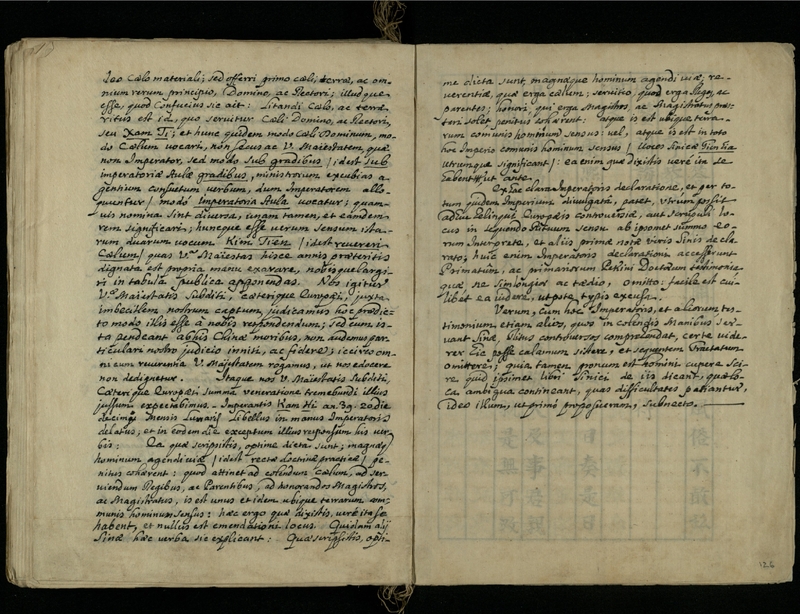 deo Cælo materiali; sed offerri primo cæli, terræ, ac om-
nium rerum principio, Domino, ac Rectori; illudque
esse, quod Confucius sic ait: Litandi Cælo, ac terræ
ritus est id, quo servitur Cæli Domino, ac Rectori,
seu Xam Ti; et hunc quidem modo Cæli Dominum, mo-
do Cælum vocari, non secus ac V. Maiestatem, quæ
non Imperator, sed modo Sub gradibus / idest Sub
imperatoriæ Aulæ gradibus, ministrorum excubias a-
gentium consuetum verbum, dum Imperatorem allo-
quuntur / modo Imperatoria Aula vocatur; quam-
vis nomina sint diversa, unam tamen, et eamdem
rem significari; huncque esse verum sensum ista-
rum duarum vocum Kim Tien / idest revereri
Cælum / quas Vᵃ Maiestas hisce annis præteritis
dignata est propria manu exarare, nobisque largi-
ri in tabula publica apponendas. Nos igitur
Vᵃ Maiestatis Subditi, cæterique Europæi, juxta
imbecillem nostrum captum, judicamus hoc prædic-
to modo illis esse à nobis respondendum; sed cum is-
ta pendeant ab huius Chinæ moribus, non audemus par-
ticulari nostro judicio inniti, ac fidere; iccirco om-
ni cum reverentia V. Maiestatem rogamus, ut nos edocere
non dedignetur. Itaque nos V. Maiestatis Subditi,
Cæterique Europæi summa veneratione tremebundi illius
jussum expectabimus. Imperantis Kam Hi an. 39. eodie
decimæ Mensis Lunaris Libellus in manus Imperatoris
delatus, et in eodem die exceptum illius responsum his ver-
bis: Ea quæ scripsistis, optime dicta sunt; magnæque
hominum agendi viæ / idest rectæ doctrinæ practicæ / pe-
nitus cohærent: quod attinet ad colendum Cælum, ad ser-
viendum Regibus, ac Parentibus, ad honorandos Magistros,
ac Magistratus, is est unus et idem ubique terrarum com-
munis hominum sensus: hæc ergo quæ dixistis, verè ita se
habent, et nullus est emendationi locus. Quidam alij
Sinæ hæc verba sic explicant: Quæ scripsistis, opti-
me dicta sunt, magnæque hominum agendi viæ; re-
verentiæ, quæ erga cælum; servitio, quod erga Reges, ac
parentes; honori, qui erga Magistros, ac Magistratus præs-
tari solet penitus cohærent: atque is est ubique terra-
rum communis hominum sensus: vel, atque is est in toto
hoc Imperio communis hominum sensus / Voces Sinicæ Tien hia
utrumque significant /: ea enim quæ dixistis verè ita se
habent &. ut ante.
Ex hac clara Imperatoris declaratione, et per to-
tum quidem Imperium divulgata, patet, utrum possit
adhuc relinqui Europæis controversiæ, aut scrupuli lo-
cus in sequendo Rituum sensu ab ipsomet summo eo-
rum Interprete, et aliis primæ notæ viris Sinis decla-
rato; huic enim Imperatoris declarationi accesserunt
Primatum, ac primariorum Pekini Doctorum testimonia
quæ ne sim longior ac tædio, omitto: facile est cui-
libet ea videre, utpote typis excusa.
Verum, cum hoc Imperatoris, et aliorum tes-
timonium etiam alios, quos in colendis Manibus ser-
vant Sinæ, Ritus controversos comprehendat, certe vide-
rer hic posse calamum sistere, et sequentem Tractatum
omittere; quia tamen pronum est homini cupere sci-
re quid ipsimet libri Sinici de iis dicant, quæ lo-
ca ambigua contineant, quas difficultates patiantur,
ideo illum, ut primò proposueram, subnecto.
126